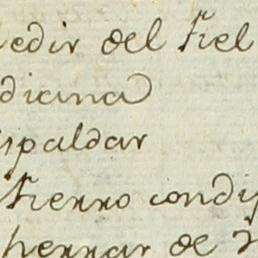 edir del fiel
diana
spaldar
fierro condi
herrar de